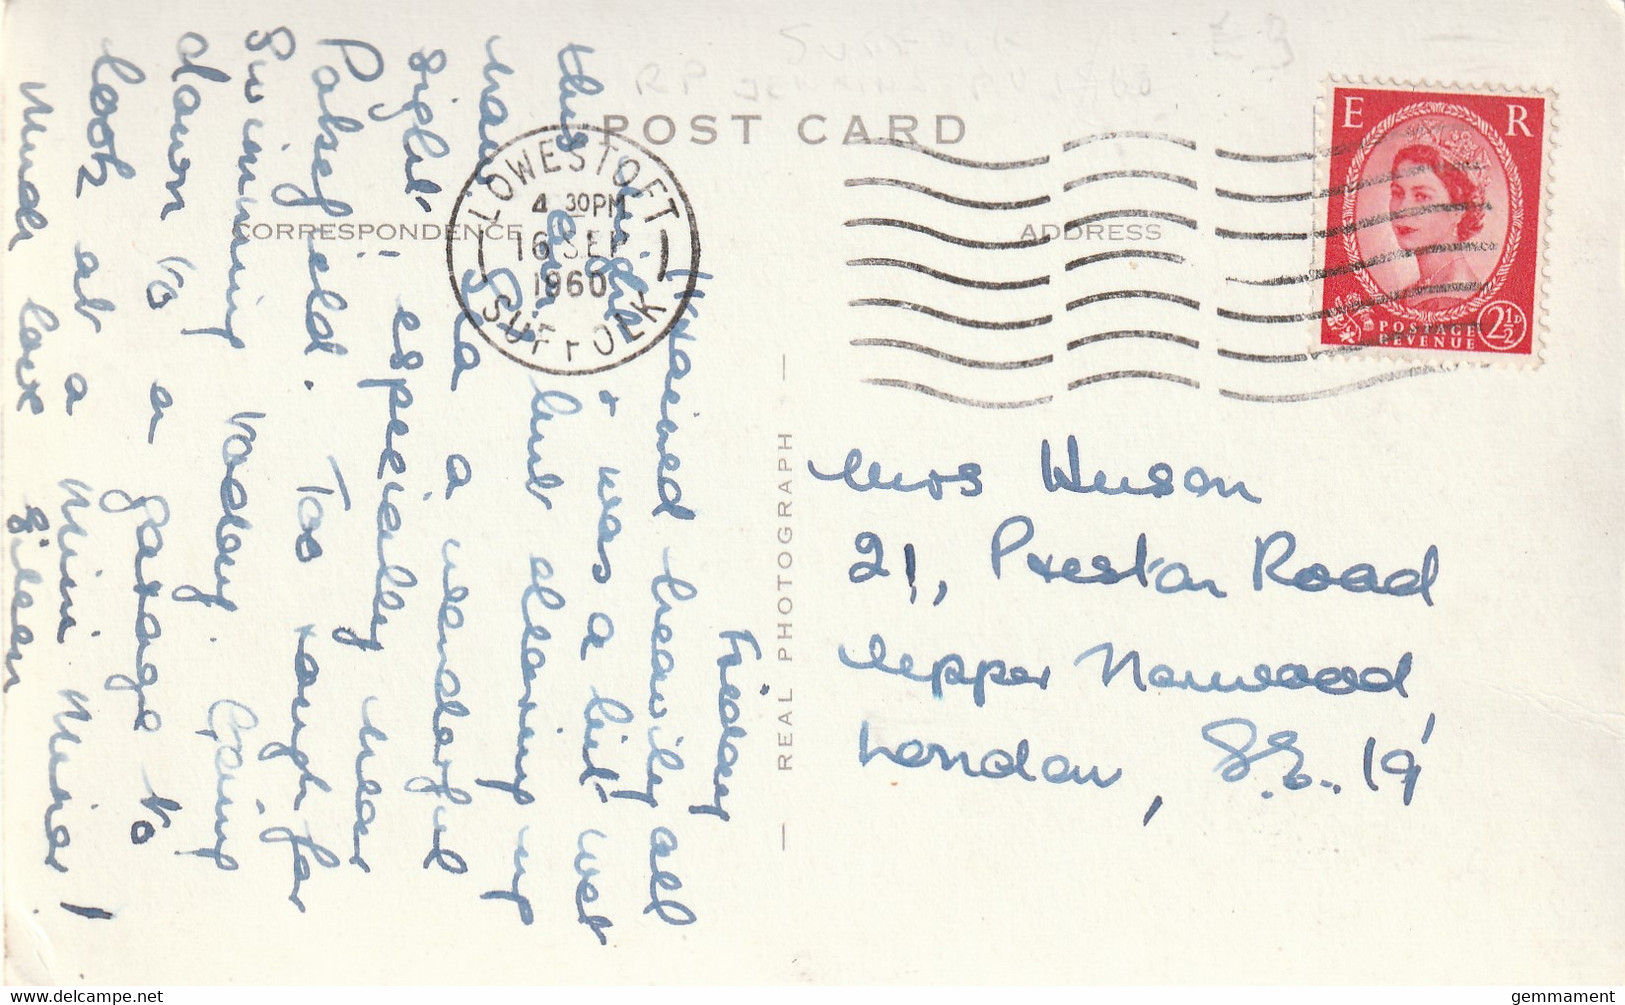 POST CARD
CORRESPONDENCE
ADDRESS
LOWESTOFT
4 30PM
16 SEP
1960
SUFFOLK
E R
POSTAGE
REVENUE
2½D
— REAL PHOTOGRAPH —
Friday
Rained heavily all
night & was a bit wet
this but clearing up
now. Sea a wonderful
sight - especially near
Pakefield. Too rough for
swimming today. Going
down to a garage to
look at a Mini Minor!
Much love Eileen
Mrs Huson
21, Preston Road
Upper Norwood,
London, S.E. 19
gemmament